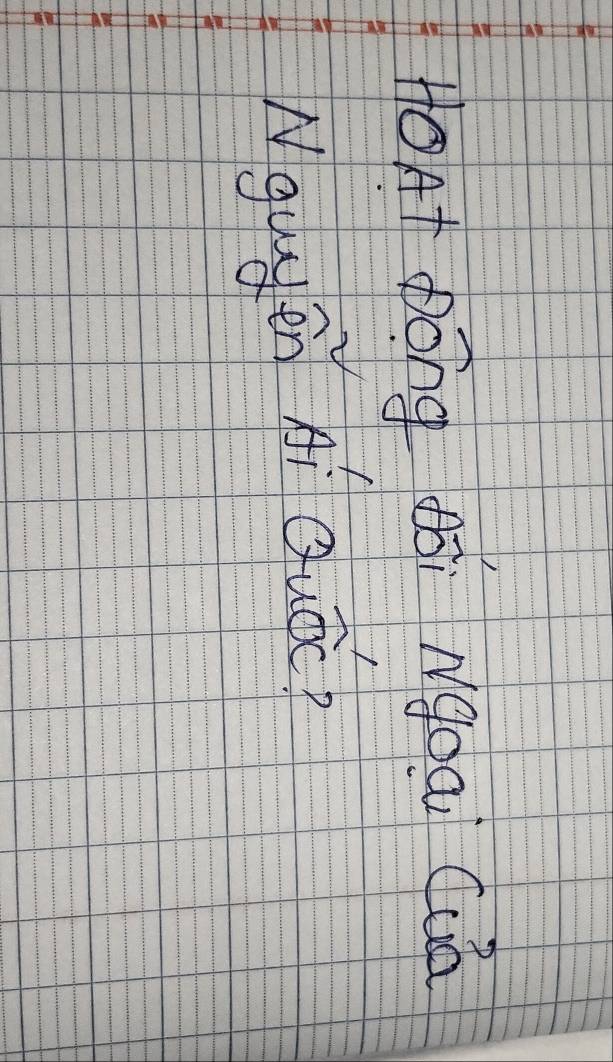 HOẠt Động đối Ngoại Của
Nguyễn Ái Quốc?